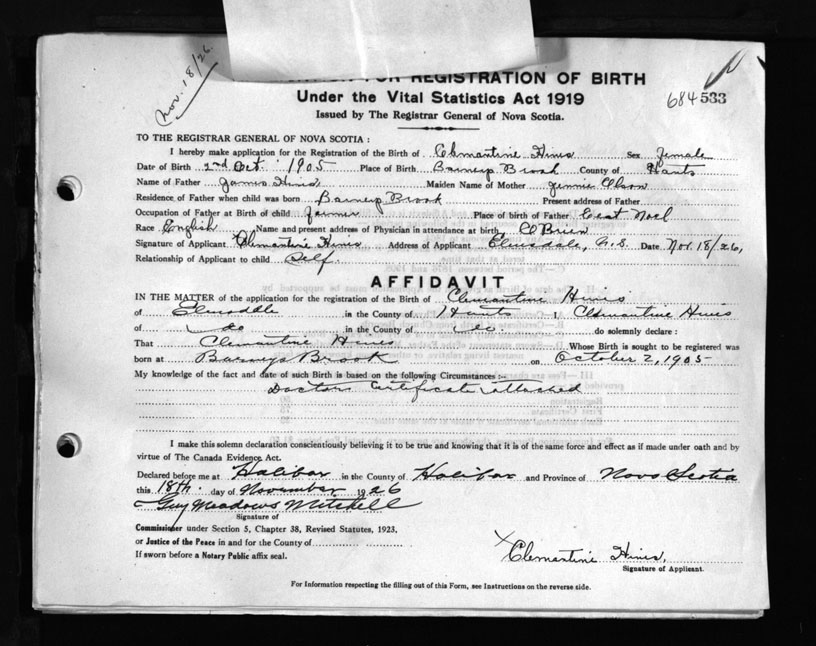 Nov. 18/26.
FOR REGISTRATION OF BIRTH
Under the Vital Statistics Act 1919
684 533
Issued by The Registrar General of Nova Scotia.
TO THE REGISTRAR GENERAL OF NOVA SCOTIA :
I hereby make application for the Registration of the Birth of Clemantine Hines Sex Female
Date of Birth 2nd Oct. 1905 Place of Birth Barneys Brook County of Hants
Name of Father James Hines Maiden Name of Mother Jennie Olson
Residence of Father when child was born Barneys Brook Present address of Father
Occupation of Father at Birth of child Farmer Place of birth of Father East Noel
Race English Name and present address of Physician in attendance at birth, O'Brien
Signature of Applicant Clemantine Hines Address of Applicant Elmsdale, N.S. Date Nov. 18/26,
Relationship of Applicant to child Self.
AFFIDAVIT
IN THE MATTER of the application for the registration of the Birth of Clemantine Hines
of Elmsdale in the County of Hants I, Clemantine Hines
of do in the County of do do solemnly declare :
That Clemantine Hines Whose Birth is sought to be registered was
born at Barneys Brook on October 2, 1905
My knowledge of the fact and date of such Birth is based on the following Circumstances :-
Doctors Certificate attached
I make this solemn declaration conscientiously believing it to be true and knowing that it is of the same force and effect as if made under oath and by
virtue of The Canada Evidence Act.
Declared before me at Halifax in the County of Halifax and Province of Nova Scotia
this 18th day of November 1926
Guy Meadows Mitchell
Signature of
Commissioner under Section 5, Chapter 38, Revised Statutes, 1923,
or Justice of the Peace in and for the County of
If sworn before a Notary Public affix seal.
X Clemantine Hines,
Signature of Applicant.
For Information respecting the filling out of this Form, see Instructions on the reverse side.